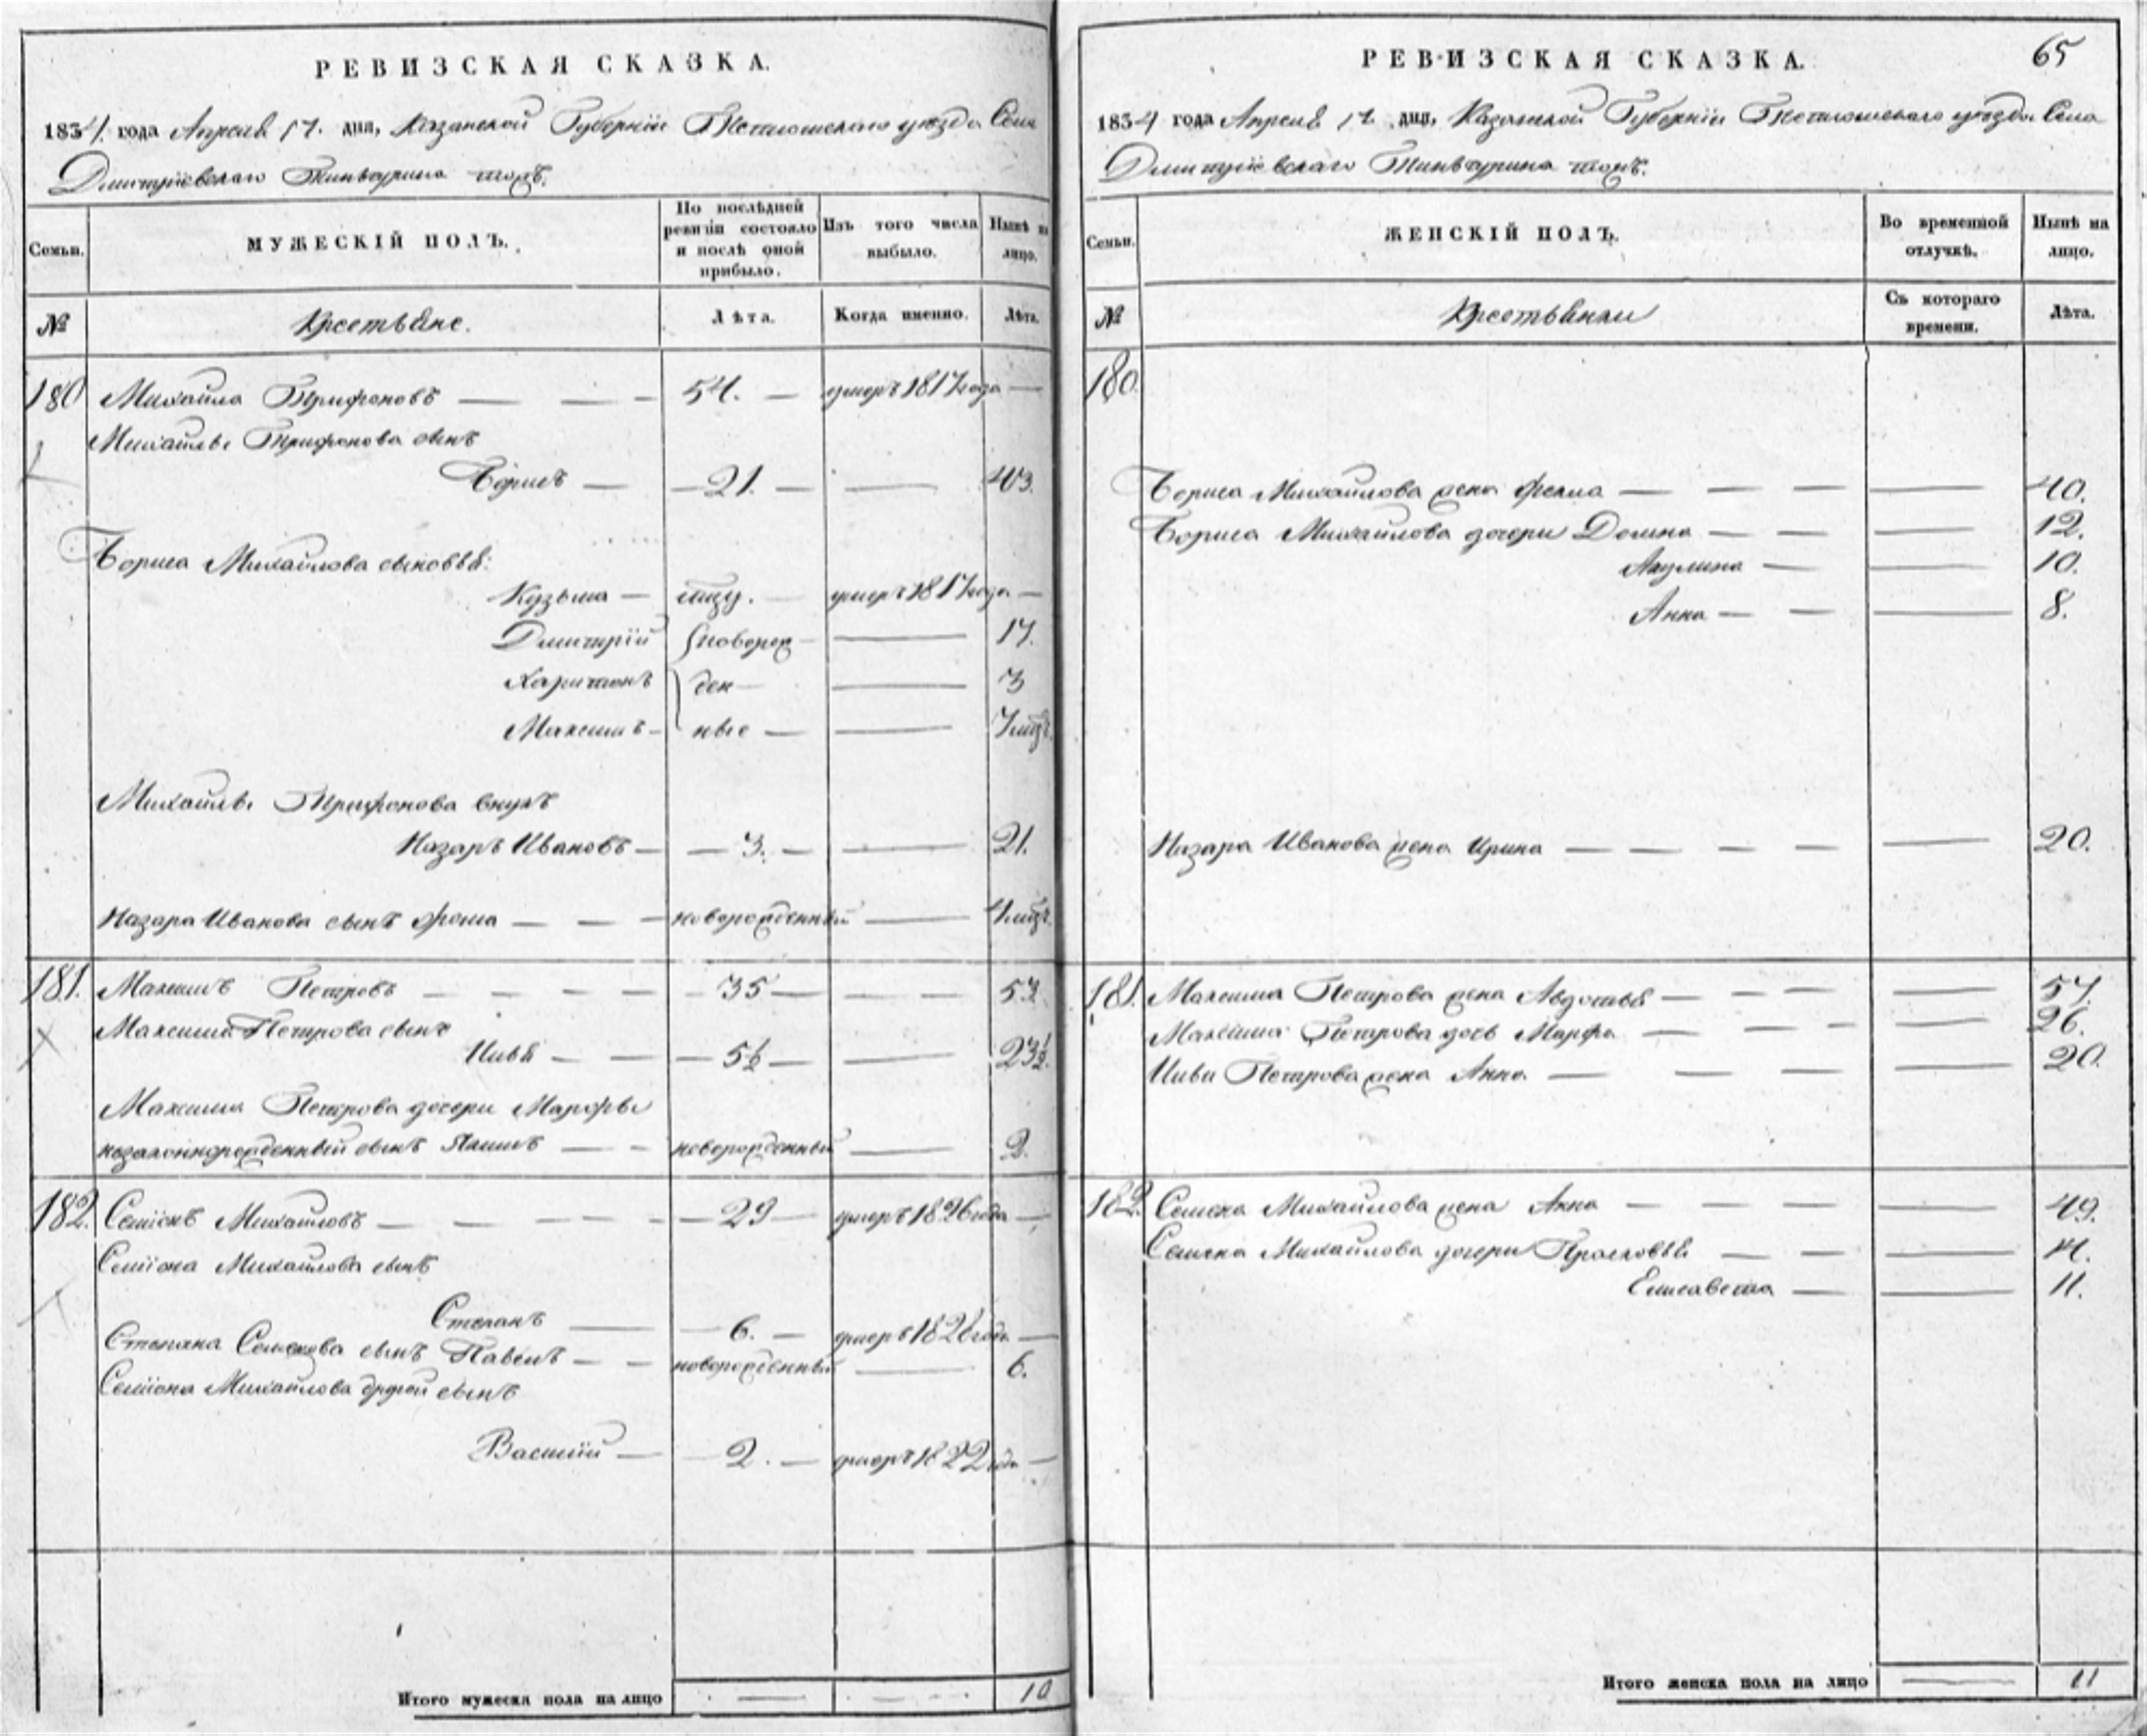 РЕВИЗСКАЯ СКАЗКА.
1834. года Апреля 17. дня, Казанской Губернїи Тетюшскаго уезда Села
Дмитрїевскаго Тинчурина тожъ.
Семьи.
МУЖЕСКІЙ ПОЛЪ.
По последней ревизіи состояло и послѣ оной прибыло.
Изъ того числа выбыло.
Нынѣ на лицо.
№
Крестьяне.
Лѣта.
Когда именно.
Лѣта.
180 Михайла Трифоновъ — 54. — умеръ 1817 года —
Михайлы Трифонова сынъ
Борисъ — 21. — 43.
Бориса Михайлова сыновья:
Кузьма — умеръ 1817 года —
Дмитрїй новорож — 17.
Харитонъ ден — 3
Максимъ — ные — 7 мцъ.
Михайлы Трифонова внукъ
Назаръ Ивановъ — 3. — 21.
Назара Иванова сынъ — новорожденный — 4 мцъ.
181. Максимъ Петровъ — 35 — 53.
Максима Петрова сынъ
5½ — 23½.
Максима Петрова дочери Марфы
незаконнорожденный сынъ — новорожденный — 2.
182. Семїонъ Михайловъ — 29 — умеръ 1826 года —
Семїона Михайлова сынъ
Степанъ — 6. — умеръ 1828 года —
Степана Семенова сынъ Павелъ — новорожденный — 6.
Семїона Михайлова другой сынъ
Василїй — 2. — умеръ 1822 года —
Итого мужеска пола на лицо 10
РЕВИЗСКАЯ СКАЗКА. 65
1834 года Апреля 17. дня, Казанской Губернїи Тетюшскаго уезда Села
Дмитрїевскаго Тинчурина тожъ.
Семьи.
ЖЕНСКІЙ ПОЛЪ.
Во временной отлучкѣ.
Нынѣ на лицо.
№
Крестьянки
Съ котораго времени.
Лѣта.
180.
Бориса Михайлова жена — 40.
Бориса Михайлова дочери Домна — 12.
Акулина — 10.
Анна — 8.
Назара Иванова жена Ирина — 20.
181. Максима Петрова жена Авдотья — 57.
Максима Петрова дочь Марфа — 26.
Петрова жена Анна — 20.
182. Семена Михайлова жена Анна — 49.
Семена Михайлова дочери Прасковья —
Елисавета — 11.
Итого женска пола на лицо — 11